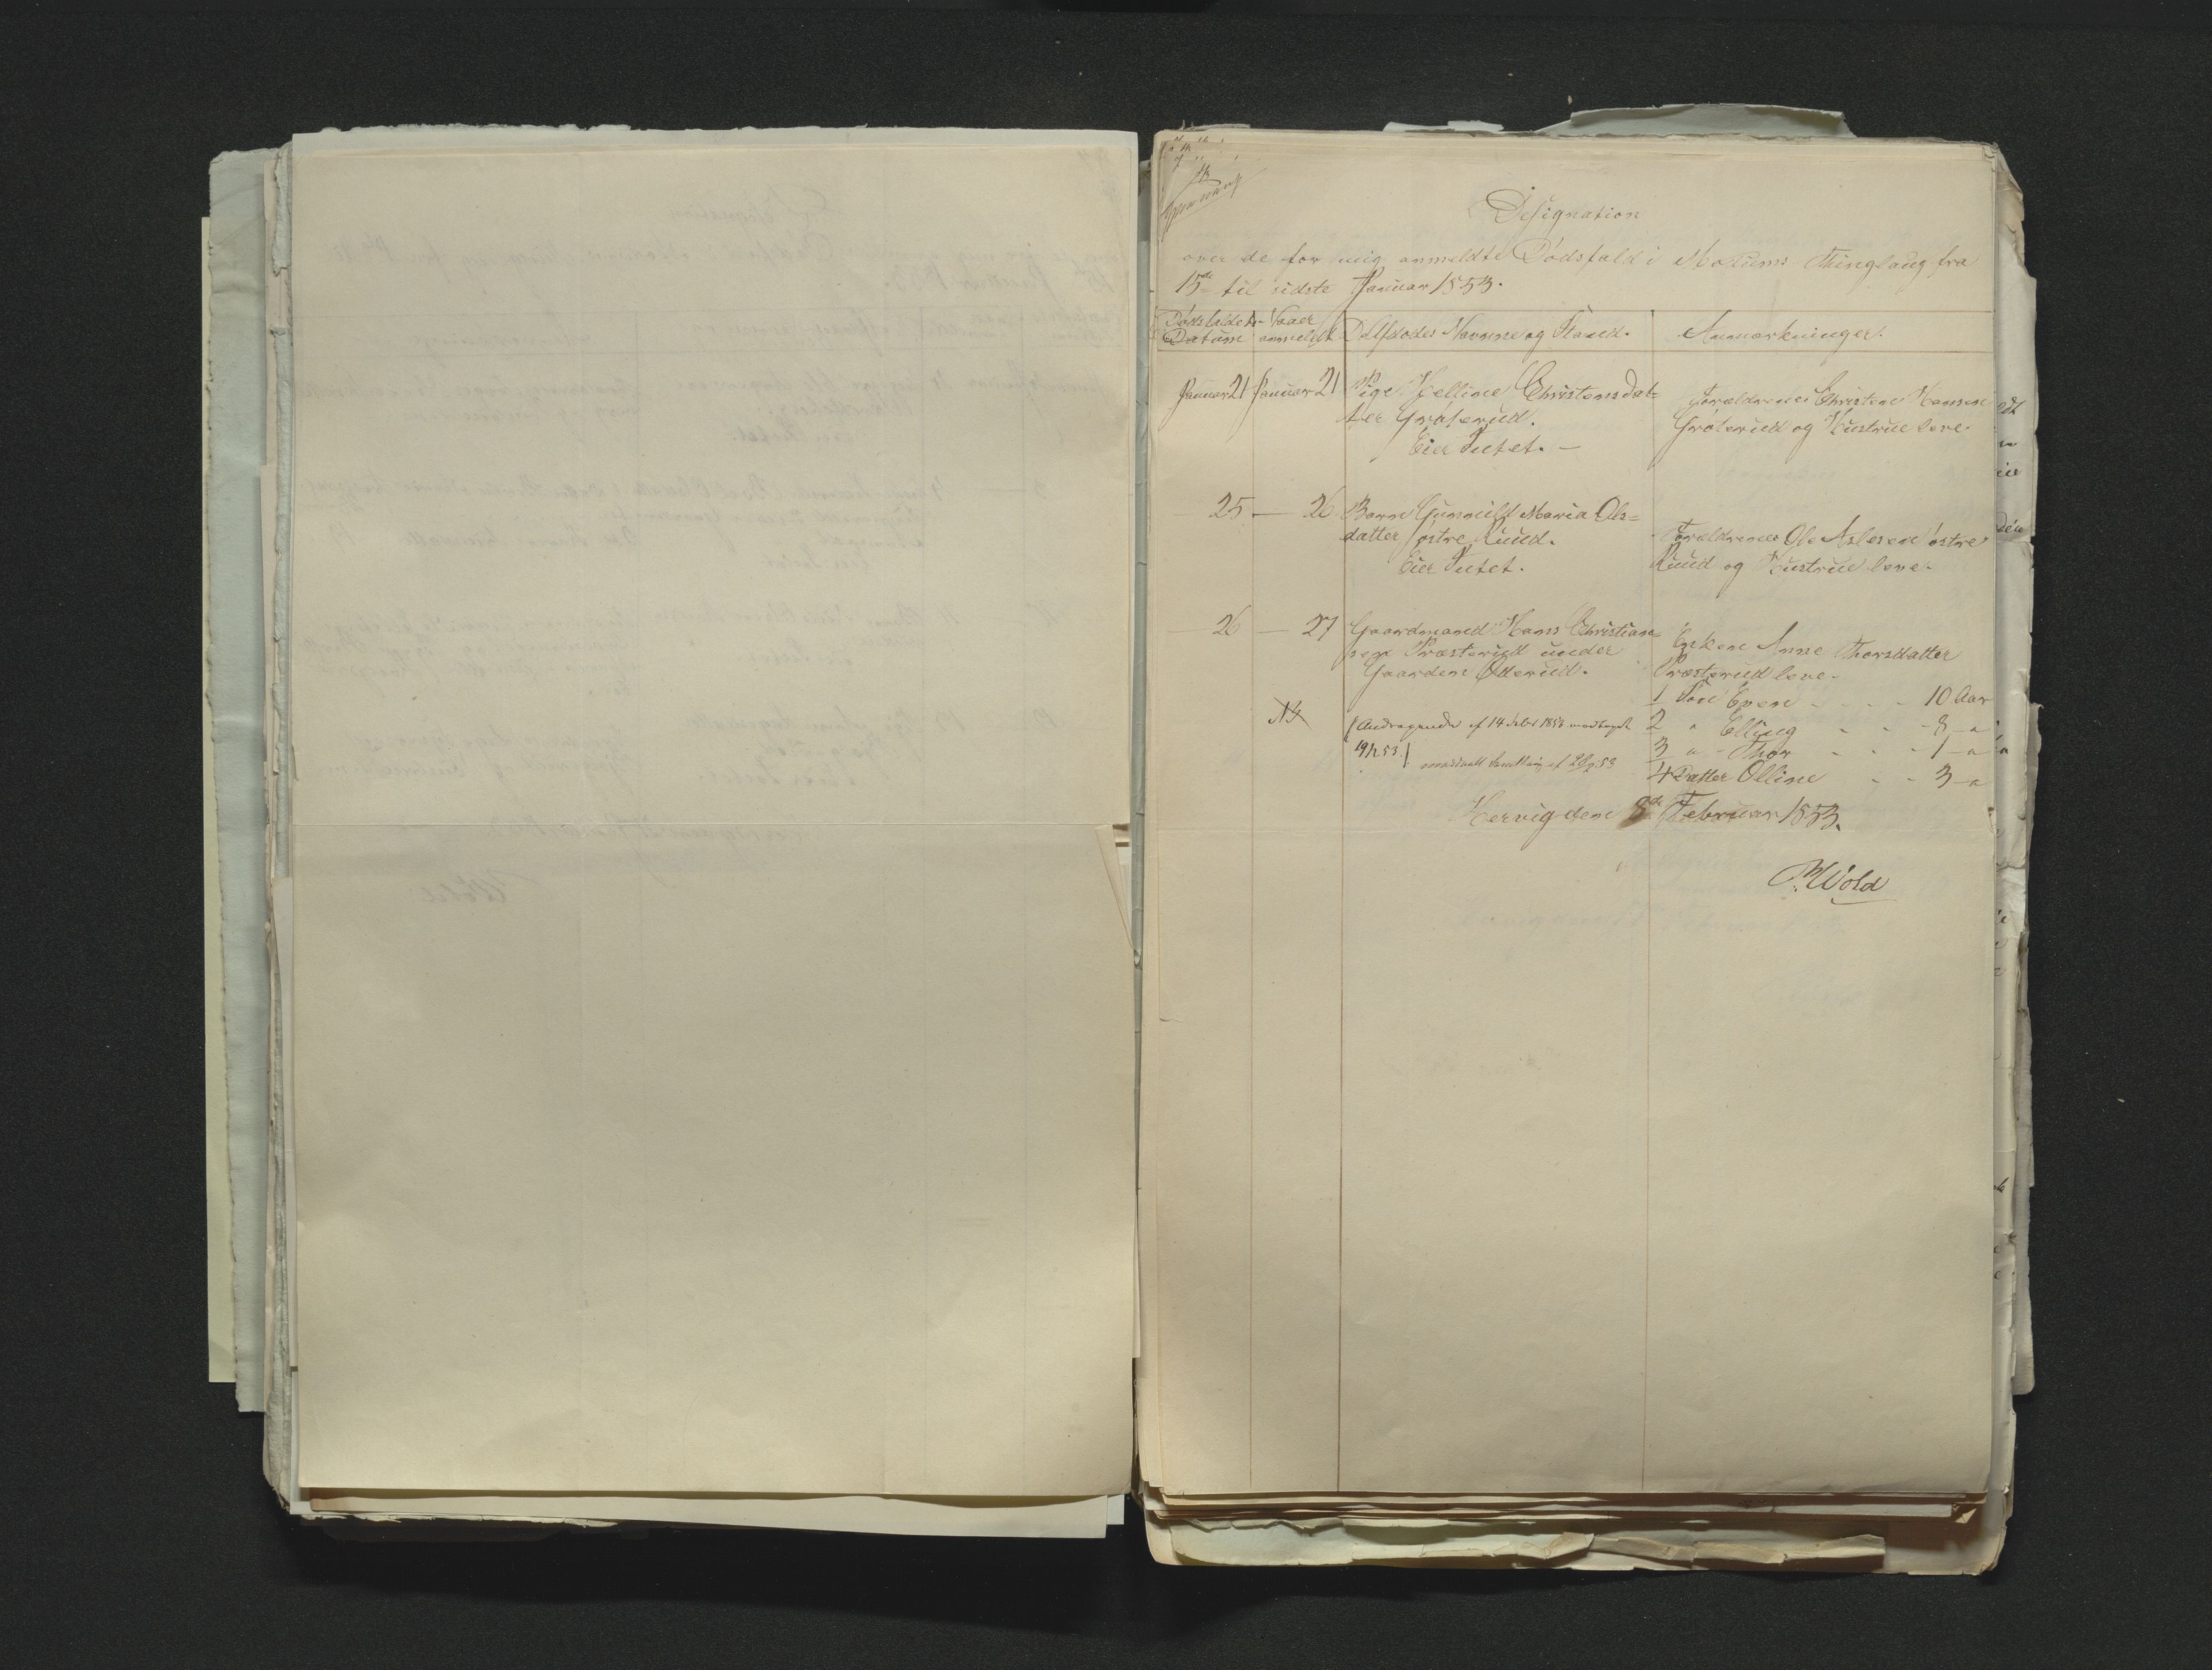 Designation
over de for mig anmeldte Dødsfald i Modums Thinglaug fra
15de til sidste Januar 1853.
Dødsfaldets Datum
Naar anmeldt
Den Afdødes Navn og Stand.
Anmærkninger.
Januar 21 Januar 21 Pige Helline Christensdat=
ter Gröterud.
Eier Intet. —
Forældrene Christen Hansen
Gröterud og Hustrue leve.
25 — 26 Barn Gunnild Maria Ols=
datter östre Ruud.
Eier Intet.
Forældrene Ole Aslesen östre
Ruud og Hustrue leve.
26 — 27 Gaardmand Hans Christian=
sen Præsterud under
Gaarden Øderud.
Enken Anne Thorsdatter
Præsterud leve.
1 Søn Even - - - 10 Aar
2 " Elling - - - 8 - "
3 " - Thor - - - 1 - "
4 Datter Olline - - 3 - "
Andragende af 14 Febr 1853 modtaget
19/2 53.
Hervig den 8de Februar 1853.
P. Wold